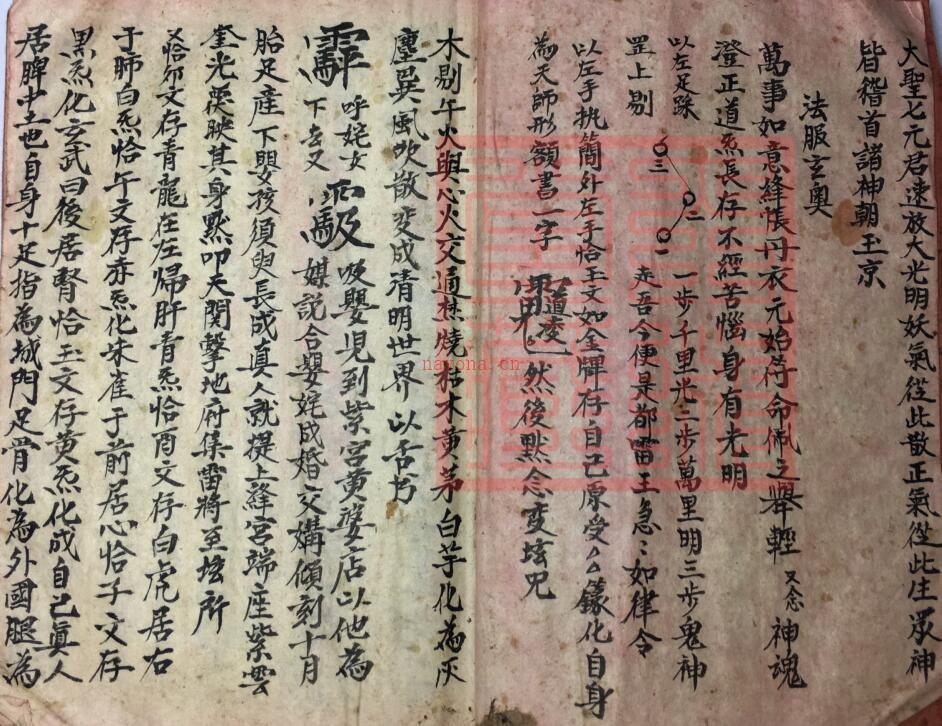 大聖七元君速放大光明妖氣從此散正氣從此生眾神
皆稽首諸神朝玉京
法服玄奧
萬事如意絳脹丹衣元始符命佩之舉輕又念神魂
澄正道炁長存不經苦惱身有光明
以左足跺 三 二 一 一步千里光二步萬里明三步鬼神
罡上剔 走吾今便是都雷主急〻如律令
以左手執簡外左手恰玉文如金牌存自己原受厶厶籙化自身
為天師形額書一字 道凌 然後默念变垓咒
木剔午火與心火交通焚燒枯木黄茅白芋化為灰
塵巽風吹散变成清明世界以舌書
呼姹女 吸嬰児到紫宮黄婆店以他為
下去又 媒説合嬰姹成婚交媾傾刻十月
胎足産下嬰孩須臾長成真人就提上絳宮端座紫雲
奎光覆映其身默叩天関擊地府集雷將至垓所
又恰卯文存青龍在左帰肝青炁恰酉文存白虎居右
于肺白炁恰午文存赤炁化朱雀于前居心恰子文存
黒炁化玄武曰後居腎恰玉文存黄炁化成自己真人
居脾中土也自身十足指為城門足骨化為外國腿為
nayona.cn